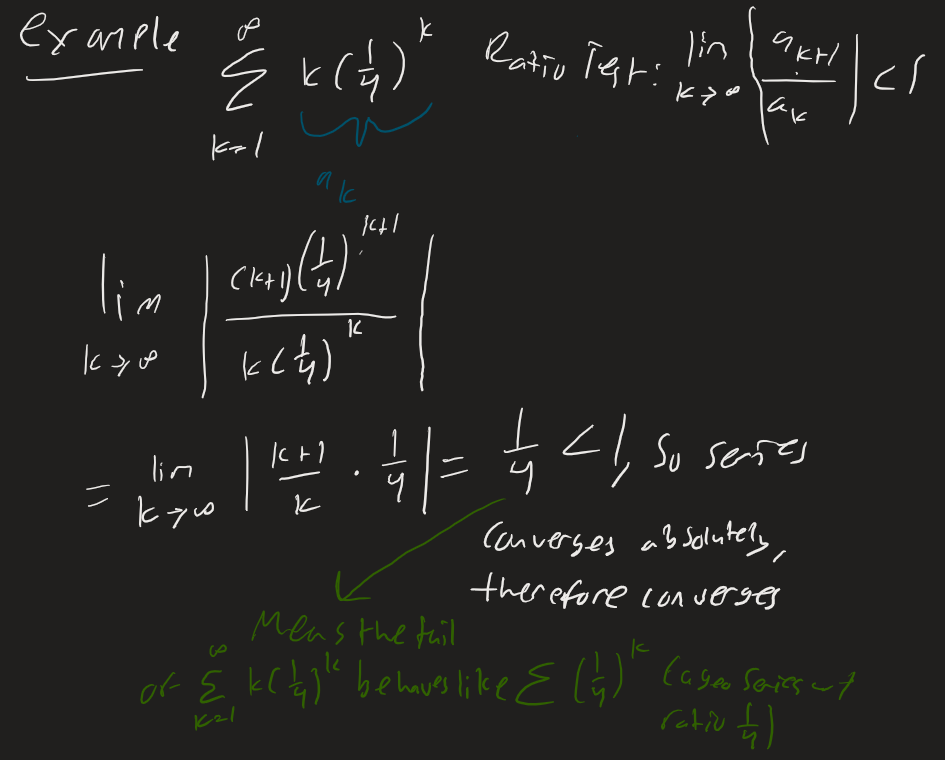 Example ∞ ∑ k=1 k(1/4)^k Ratio Test: lim k→∞ |a_{k+1}/a_k| < 1
a_k
lim k→∞ |(k+1)(1/4)^{k+1} / k(1/4)^k|
= lim k→∞ |k+1/k · 1/4| = 1/4 < 1, so series
converges absolutely,
therefore converges
Means the tail
of ∞ ∑ k=1 k(1/4)^k behaves like ∑ (1/4)^k (a geo series w/
ratio 1/4)